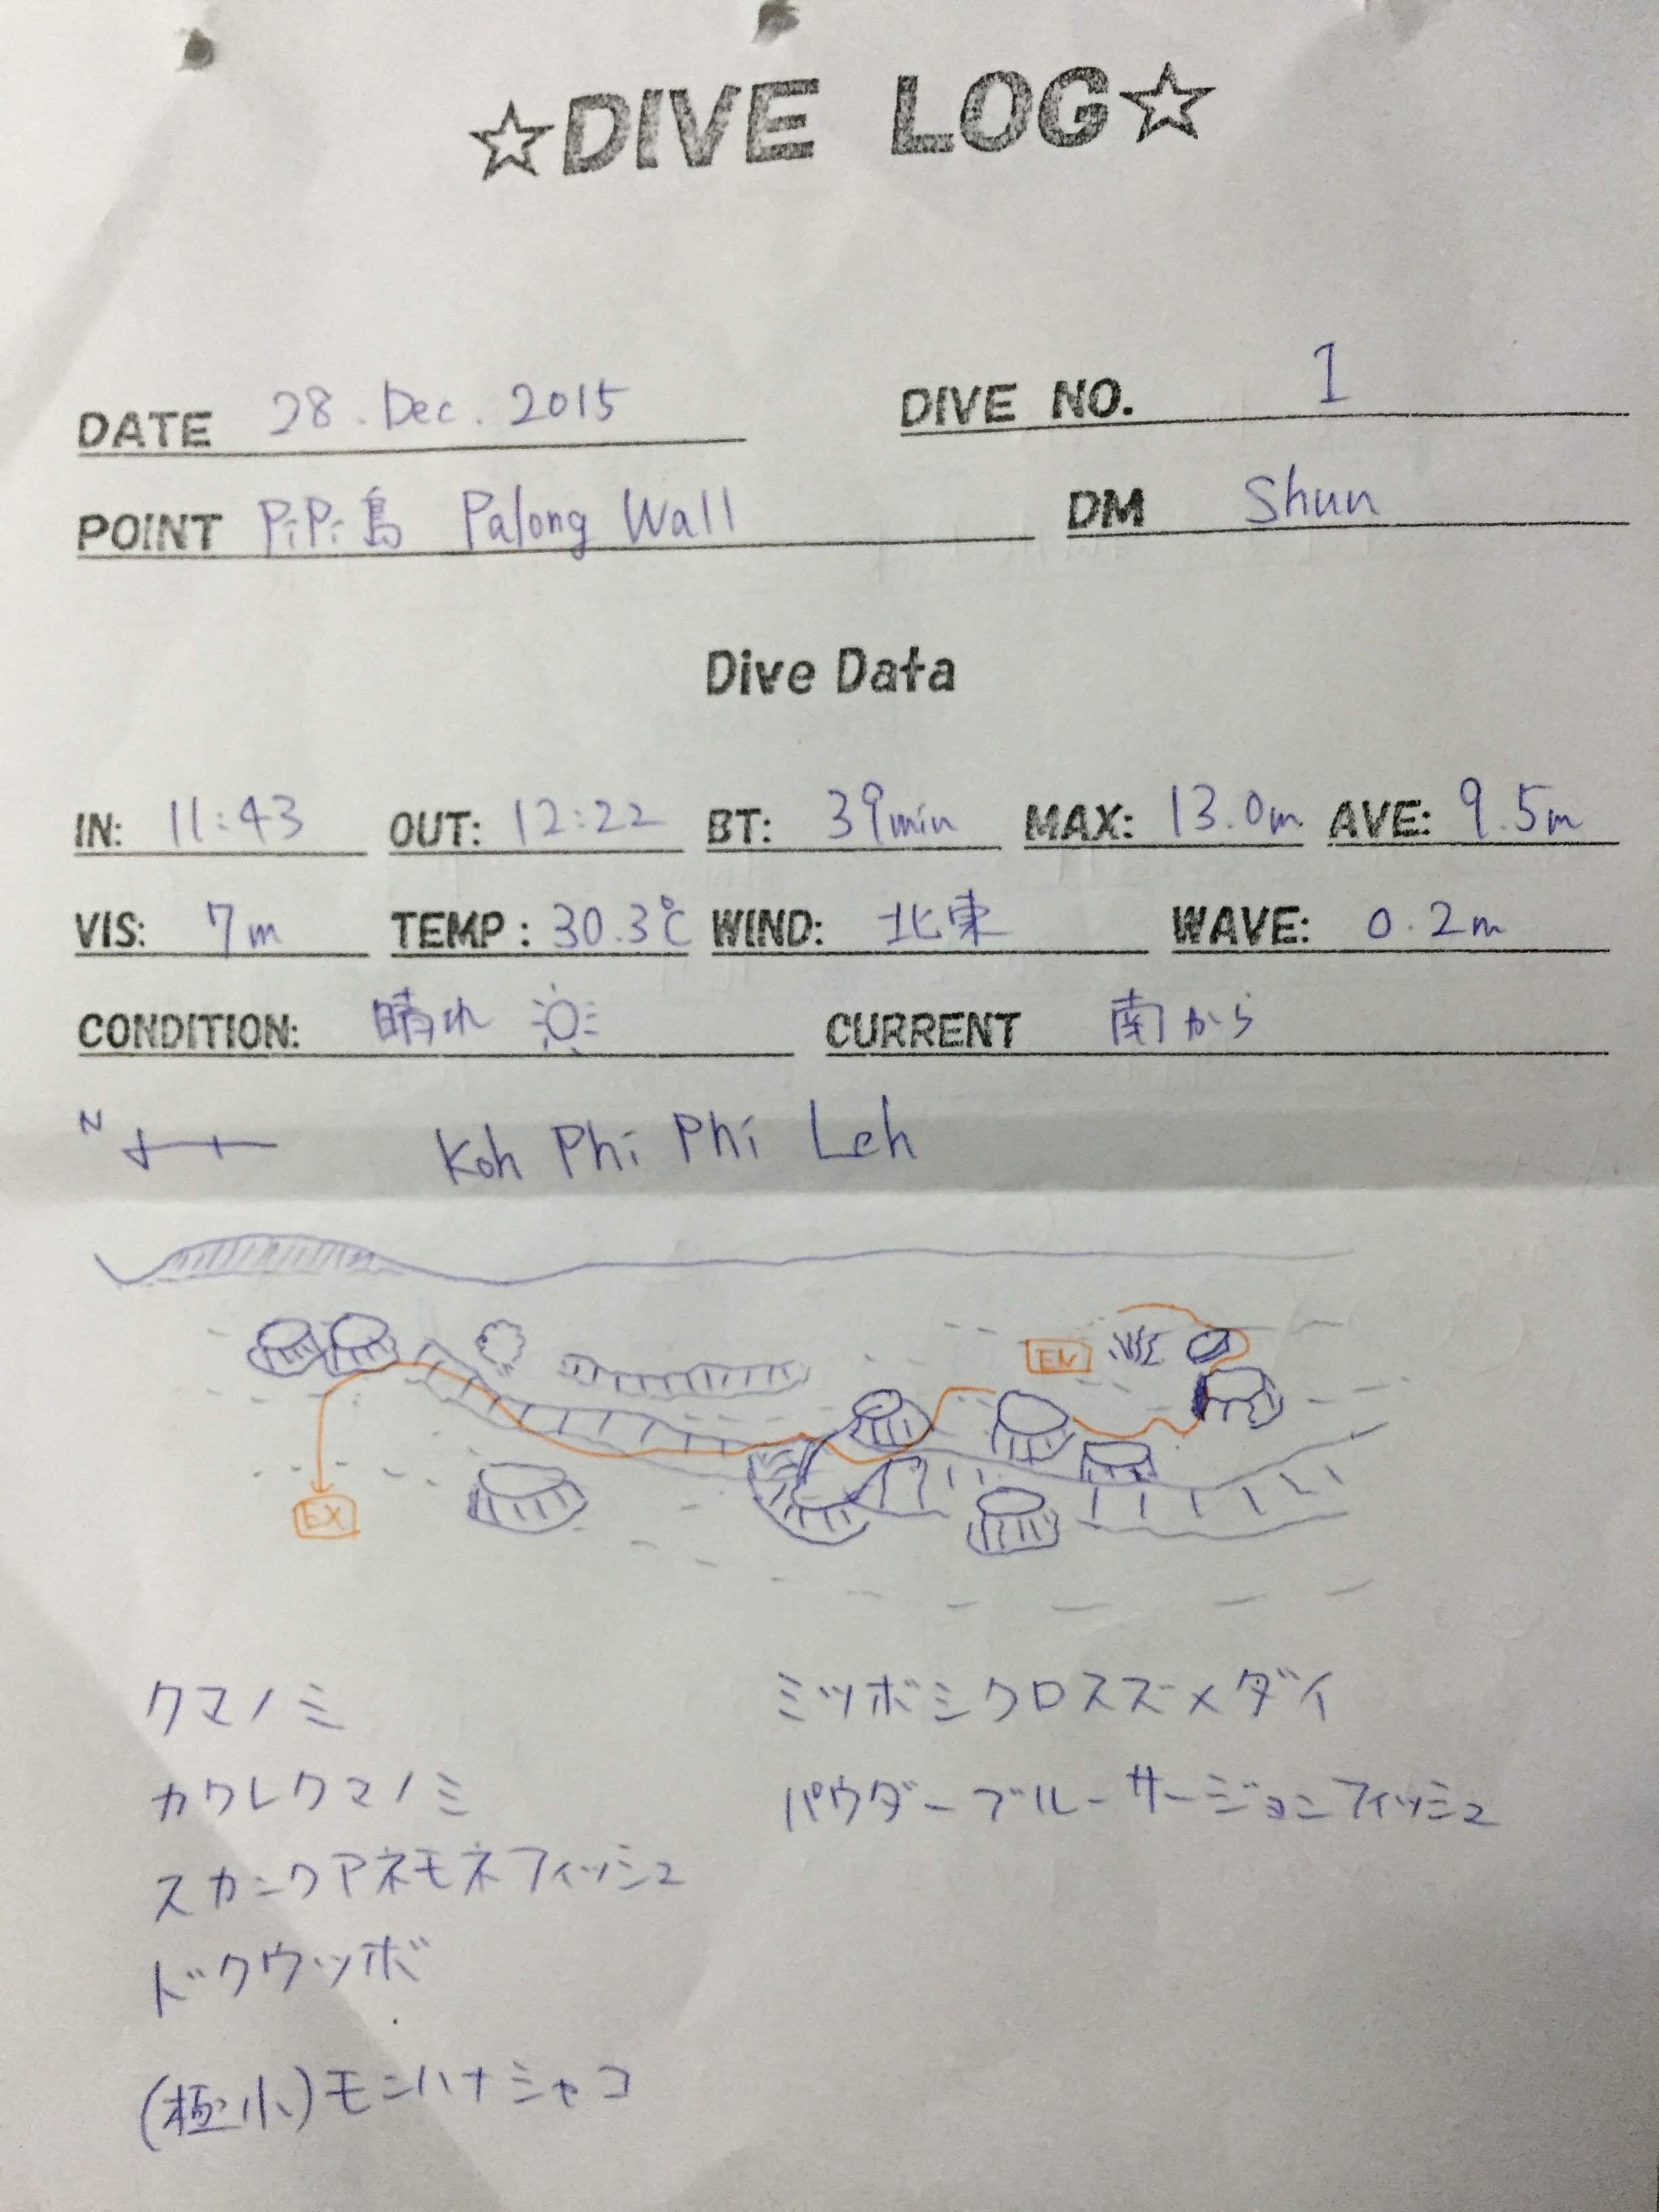 ☆DIVE LOG☆
DATE 28. Dec. 2015 DIVE NO. 1
POINT PiPi島 Palong Wall DM Shun
Dive Data
IN: 11:43 OUT: 12:22 BT: 39min MAX: 13.0m AVE: 9.5m
VIS: 7m TEMP: 30.3℃ WIND: 北東 WAVE: 0.2m
CONDITION: 晴れ CURRENT 南から
N Koh Phi Phi Leh
EN
EX
クマノミ ミツボシクロスズメダイ
カクレクマノミ パウダーブルーサージョンフィッシュ
スカンクアネモネフィッシュ
ドクウツボ
(極小)モンハナシャコ